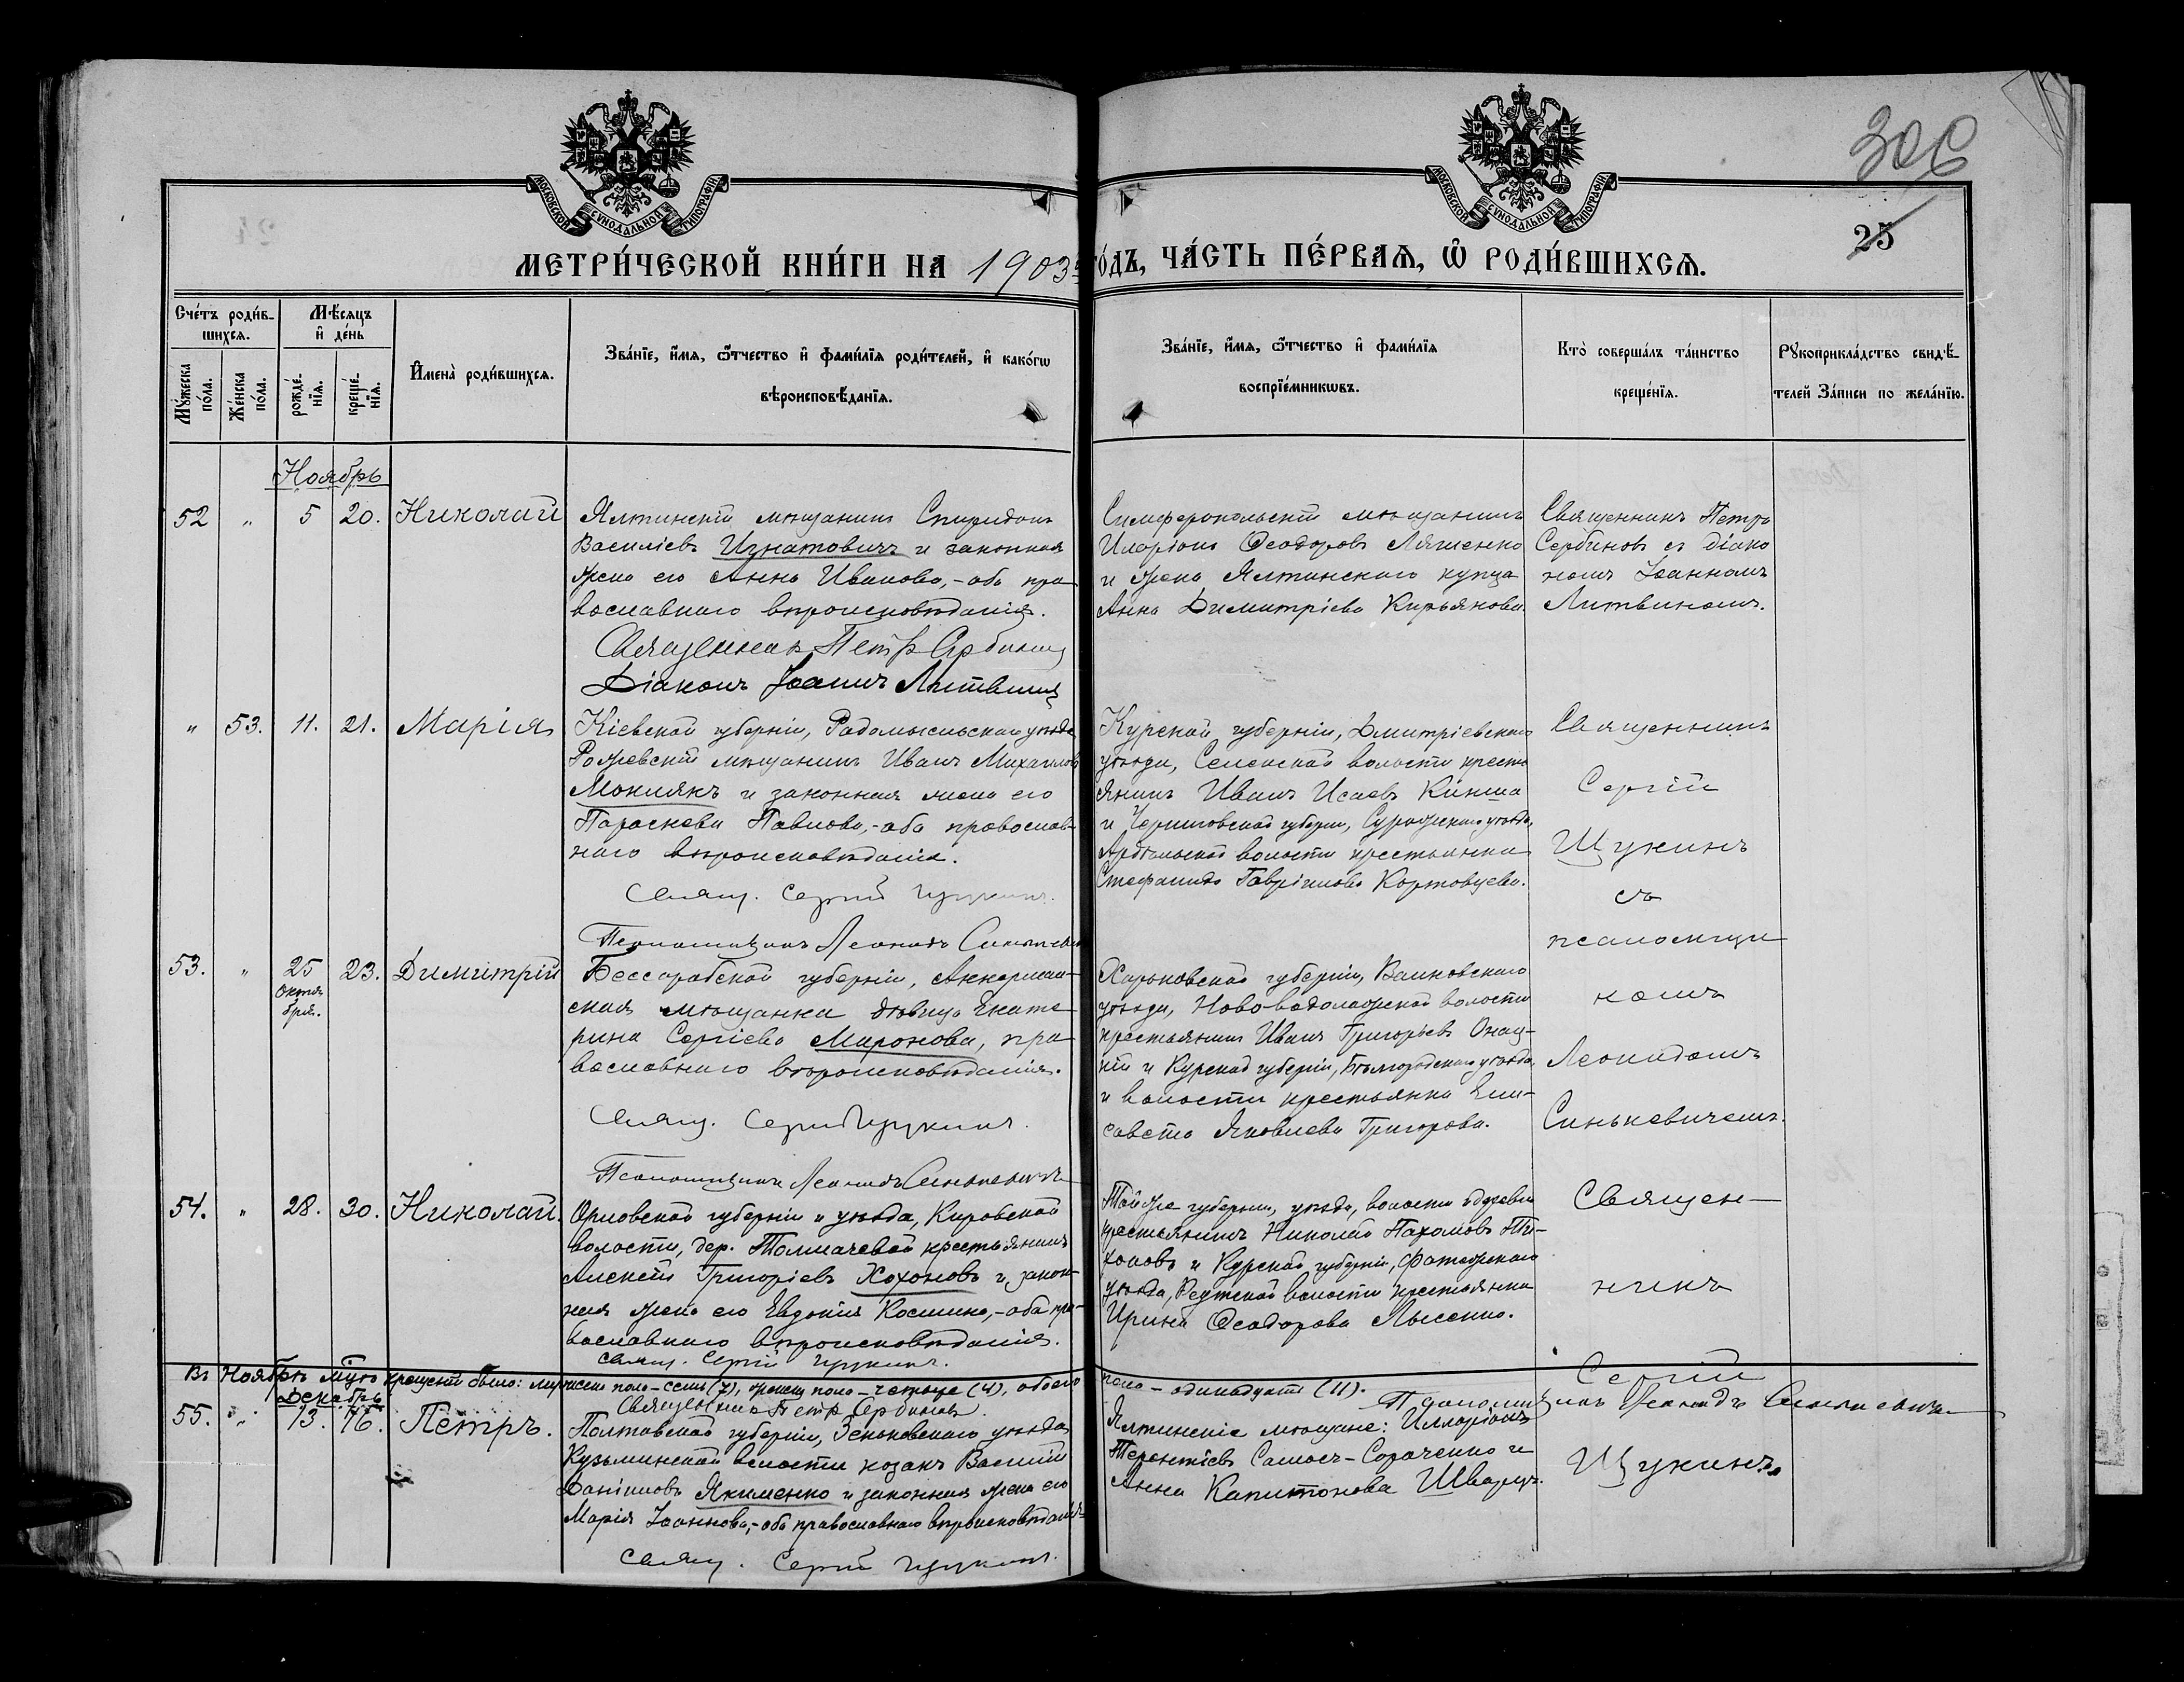 МОСКОВСКОЙ СУНОДАЛЬНОЙ ТИПОГРАФІИ
МОСКОВСКОЙ СУНОДАЛЬНОЙ ТИПОГРАФІИ
306
25
МЕТРИ́ЧЕСКОЙ КНИ́ГИ НА 1903й
ГО́ДЪ, ЧА́СТЬ ПЕ́РВАѦ, Ѡ҆ РОДИ́ВШИХСѦ.
Сче́тъ роди́в-
шихсѧ.
Мѣ́сѧцъ
и҆ де́нь
Мꙋ́жеска
по́ла.
Же́нска
по́ла.
рожде́-
нїѧ.
креще́-
нїѧ.
И҆мена̀ роди́вшихсѧ.
Зва́нїе, и҆́мѧ, ѻ҆́тчество и҆ фами́лїѧ роди́телей, и҆ како́гѡ
вѣроисповѣ́данїѧ.
Зва́нїе, и҆́мѧ, ѻ҆́тчество и҆ фами́лїѧ
воспрїе́мникѡвъ.
Кто̀ соверша́лъ та́инство
креще́нїѧ.
Рꙋкоприкла́дство свидѣ́-
телей За́писи по жела́нїю.
Ноябрь
52 „ 5 20. Николай
Ялтинскій мѣщанинъ Спиридонъ
Василіевъ Игнатовичъ и законная
жена его Анна Иванова,-оба пра
вославнаго вѣроисповѣданія.
Священникъ Петръ Сербиновъ
Діаконъ Іоаннъ Литвинъ
Симферопольскій мѣщанинъ
Иларіонъ Ѳеодоровъ Ляшенко
и жена Ялтинскаго купца
Анна Димитріева Кирьянова.
Священникъ Петръ
Сербиновъ съ діако
номъ Іоанномъ
Литвиномъ.
„ 53. 11. 21. Марія
Кіевской губерніи, Радомысльскаго уѣзда
Рожевскій мѣщанинъ Иванъ Михаиловъ
Мокиякъ и законная жена его
Параскева Павлова,-оба православ-
наго вѣроисповѣданія.
Свящ. Сергій Щукинъ.
Псаломщикъ Леонидъ Синькевичъ
Курской губерніи, Дмитріевскаго
уѣзда, Селенской волости кресть
янинъ Иванъ Исаевъ Кинша
и Черниговской губерніи, Суражскаго уѣзда,
волости крестьянка
Стефанида Гавріилова Картовцева.
Священникъ
Сергій
Щукинъ
съ
псаломщи
комъ
Леонидомъ
Синькевичемъ.
53. „ 25 Октя
бря. 23. Димитрій
Бессарабской губерніи, Аккерман-
ская мѣщанка дѣвица Екате-
рина Сергіева Миронова, пра
вославнаго вѣроисповѣданія.
Свящ. Сергій Щукинъ.
Псаломщикъ Леонидъ Синькевичъ
Харьковской губерніи, Валковскаго
уѣзда, Ново-водолажской волости
крестьянинъ Иванъ Григорьевъ Онац-
кій и Курской губерніи, Бѣлгородскаго уѣзда
и волости крестьянка Ели-
савета Яковлева Григорова.
54. „ 28. 30. Николай.
Орловской губерніи и уѣзда, Кировской
волости, дер. Толмачевой крестьянинъ
Алексѣй Григоріевъ Хохоновъ и закон-
ная жена его Евдокія Косьмина,-оба пра-
вославнаго вѣроисповѣданія.
Свящ. Сергій Щукинъ.
Той же губерніи, уѣзда, волости и деревни
крестьянинъ Николай Пахомовъ Ти-
хоновъ и Курской губерніи, Фатежскаго
уѣзда, Реутской волости крестьянка
Ирина Ѳеодорова Лысенко.
Священ-
никъ
Сергій
Щукинъ.
Въ Ноябрѣ м-цѣ крещеній было: мужеска пола-семь (7), женска пола-четыре (4), обоего
пола-одинадцать (11).
Священникъ Петръ Сербиновъ.
Псаломщикъ Леонидъ Синькевичъ
Декабрь
55. „ 13. 16. Петръ.
Полтавской губерніи, Зеньковскаго уѣзда,
Кузьминской волости козакъ Василій
Даніиловъ Якименко и законная жена его
Марія Іоаннова,-оба православнаго вѣроисповѣданія.
Свящ. Сергій Щукинъ.
Ялтинскіе мѣщане: Илларіонъ
Терентіевъ Самось-Сораченко и
Анна Капитонова Шварцъ.